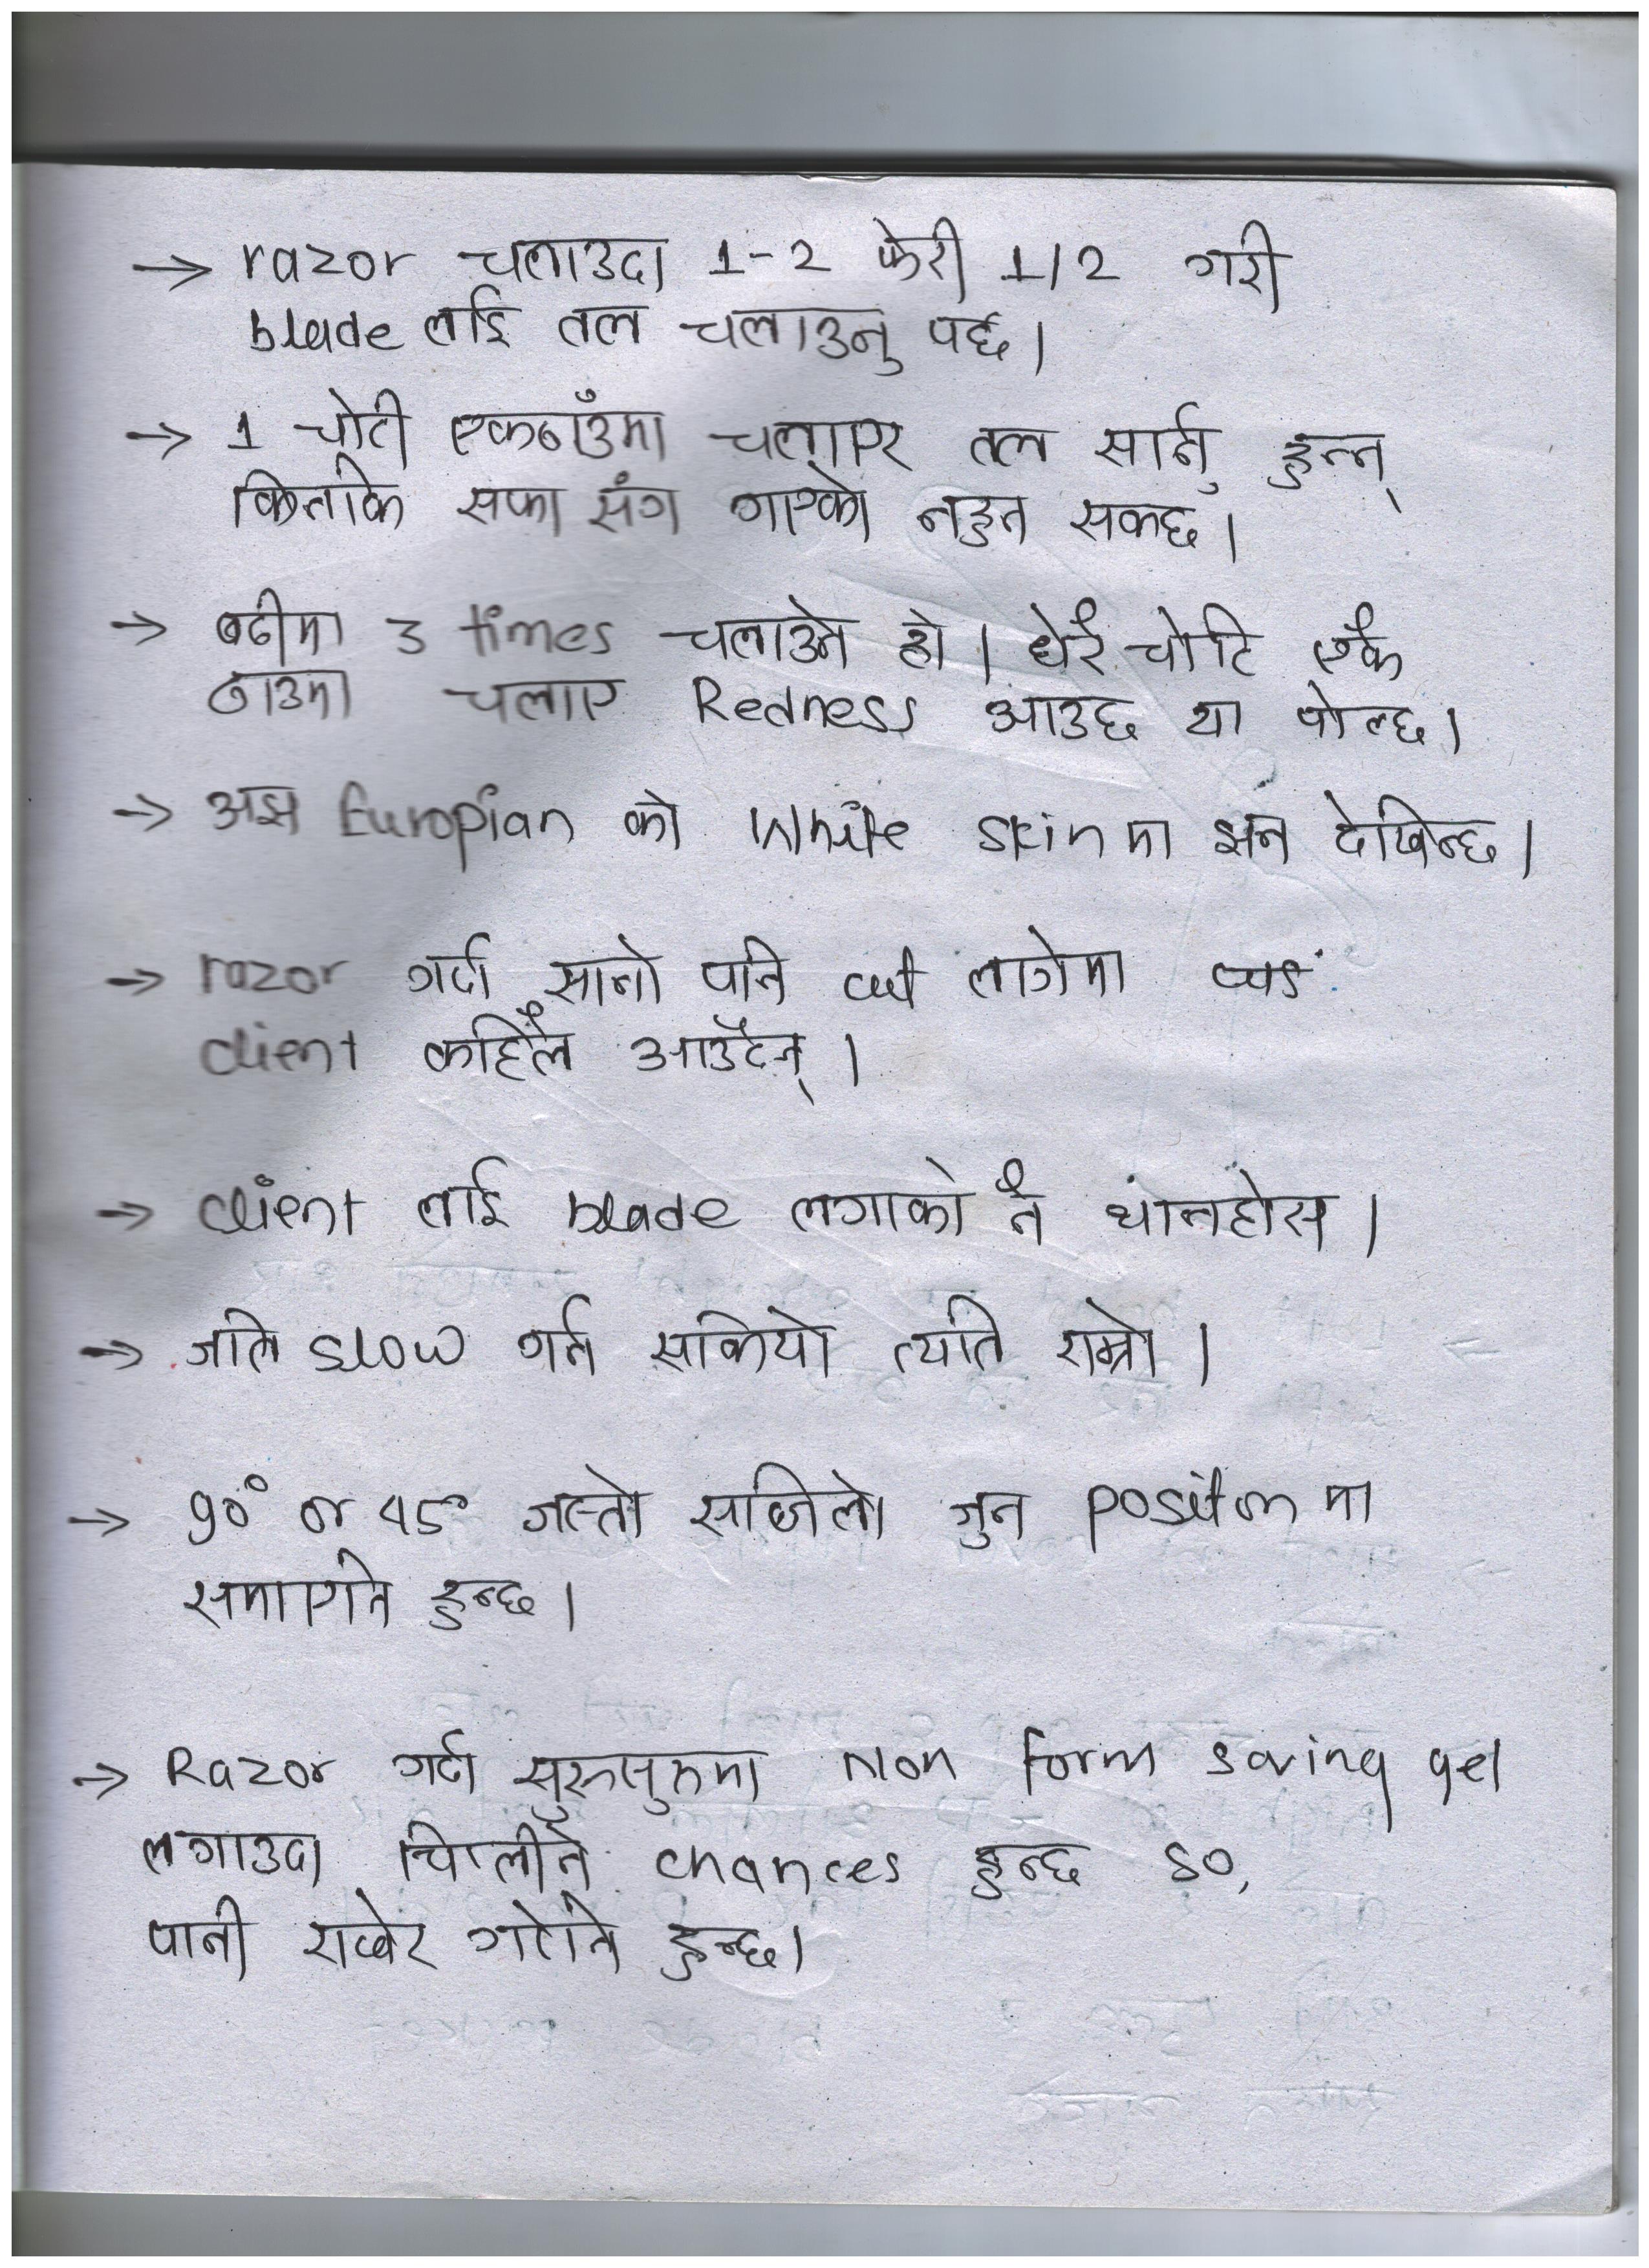 → razor चलाउदा 1-2 फेरी 1/2 गरी
blade लाई तल चलाउनु पर्छ।
→ 1 चोटी एकठाँउमा चलाएर तल सार्नु हुन्न्
किनकि सफा संग गएको नहुन सक्छ।
→ बढीमा 3 times चलाउने हो। धेरै चोटि एकै
ठाउमा चलाए Redness आउछ या पोल्छ।
→ अझ Europian को White skin मा झन देखिन्छ।
→ razor गर्दा सानो पनि cut लागेमा त्यस
client कहिलै आउँदैन्।
→ client लाई blade लगाको नै थानहोस।
→ जति slow गर्न सकियो त्यति राम्रो।
→ 90° or 45° जस्तो सजिलो जुन position मा
समाएनि हुन्छ।
→ Razor गर्दा सुरुसुरुमा non form saving gel
लगाउदा चिप्लीने chances हुन्छ so,
पानी राखेर गरेनि हुन्छ।